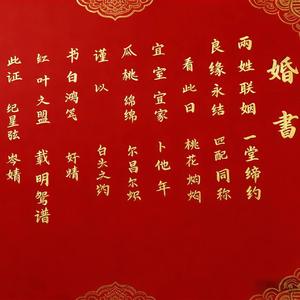 婚書
两姓联姻 一堂缔约
良缘永结 匹配同称
看此日 桃花灼灼
宜室宜家 卜他年
瓜桃绵绵 尔昌尔炽
谨以 白头之约
书白鸿笺 好情
红叶之盟 载明鸳谱
此证 纪星弦 岑婧